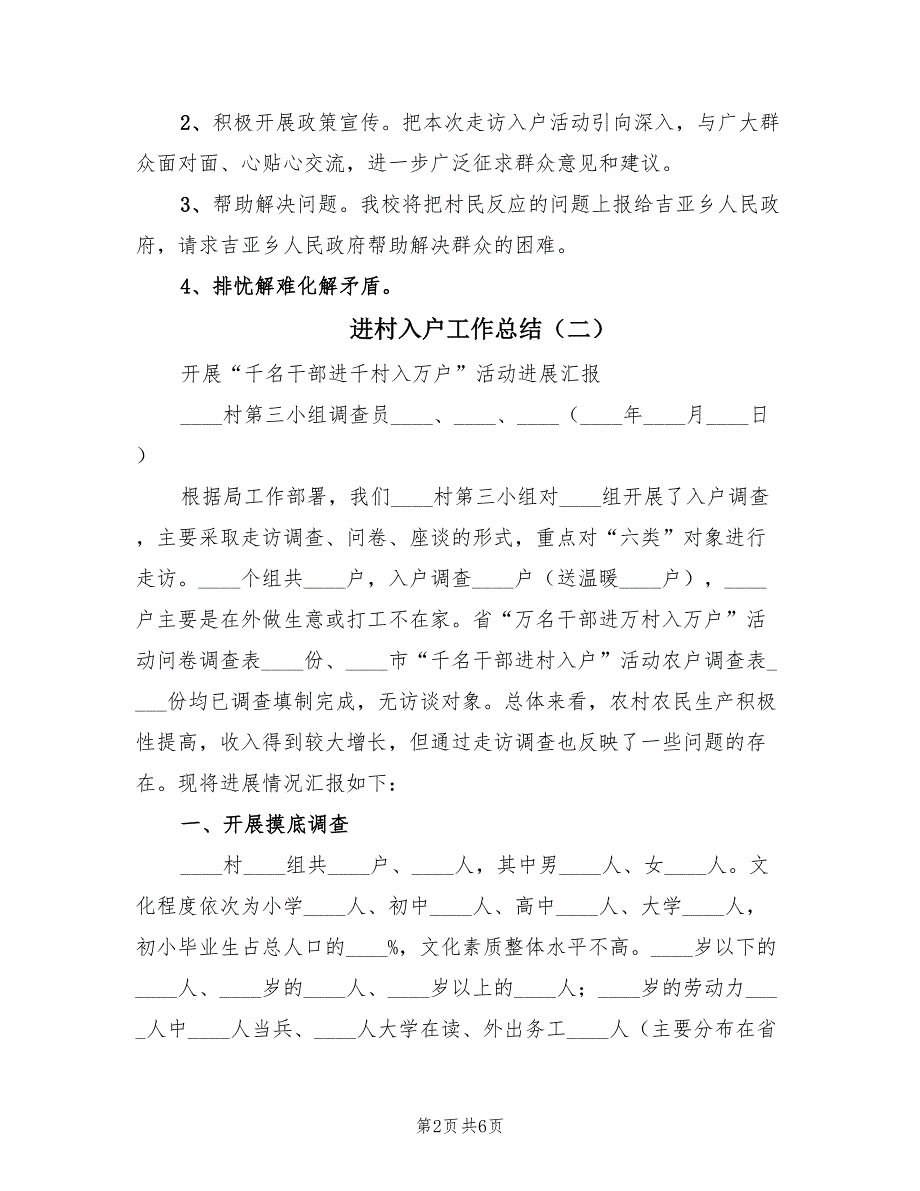 2、积极开展政策宣传。把本次走访入户活动引向深入，与广大群
众面对面、心贴心交流，进一步广泛征求群众意见和建议。
3、帮助解决问题。我校将把村民反应的问题上报给吉亚乡人民政
府，请求吉亚乡人民政府帮助解决群众的困难。
4、排忧解难化解矛盾。
进村入户工作总结（二）
开展“千名干部进千村入万户”活动进展汇报
____村第三小组调查员____、____、____（____年____月____日
）
根据局工作部署，我们____村第三小组对____组开展了入户调查
，主要采取走访调查、问卷、座谈的形式，重点对“六类”对象进行
走访。____个组共____户，入户调查____户（送温暖____户），____
户主要是在外做生意或打工不在家。省“万名干部进万村入万户”活
动问卷调查表____份、____市“千名干部进村入户”活动农户调查表_
___份均已调查填制完成，无访谈对象。总体来看，农村农民生产积极
性提高，收入得到较大增长，但通过走访调查也反映了一些问题的存
在。现将进展情况汇报如下：
一、开展摸底调查
____村____组共____户、____人，其中男____人、女____人。文
化程度依次为小学____人、初中____人、高中____人、大学____人，
初小毕业生占总人口的____%，文化素质整体水平不高。____岁以下的
____人、____岁的____人、____岁以上的____人；____岁的劳动力___
_人中____人当兵、____人大学在读、外出务工____人（主要分布在省
第2页共6页